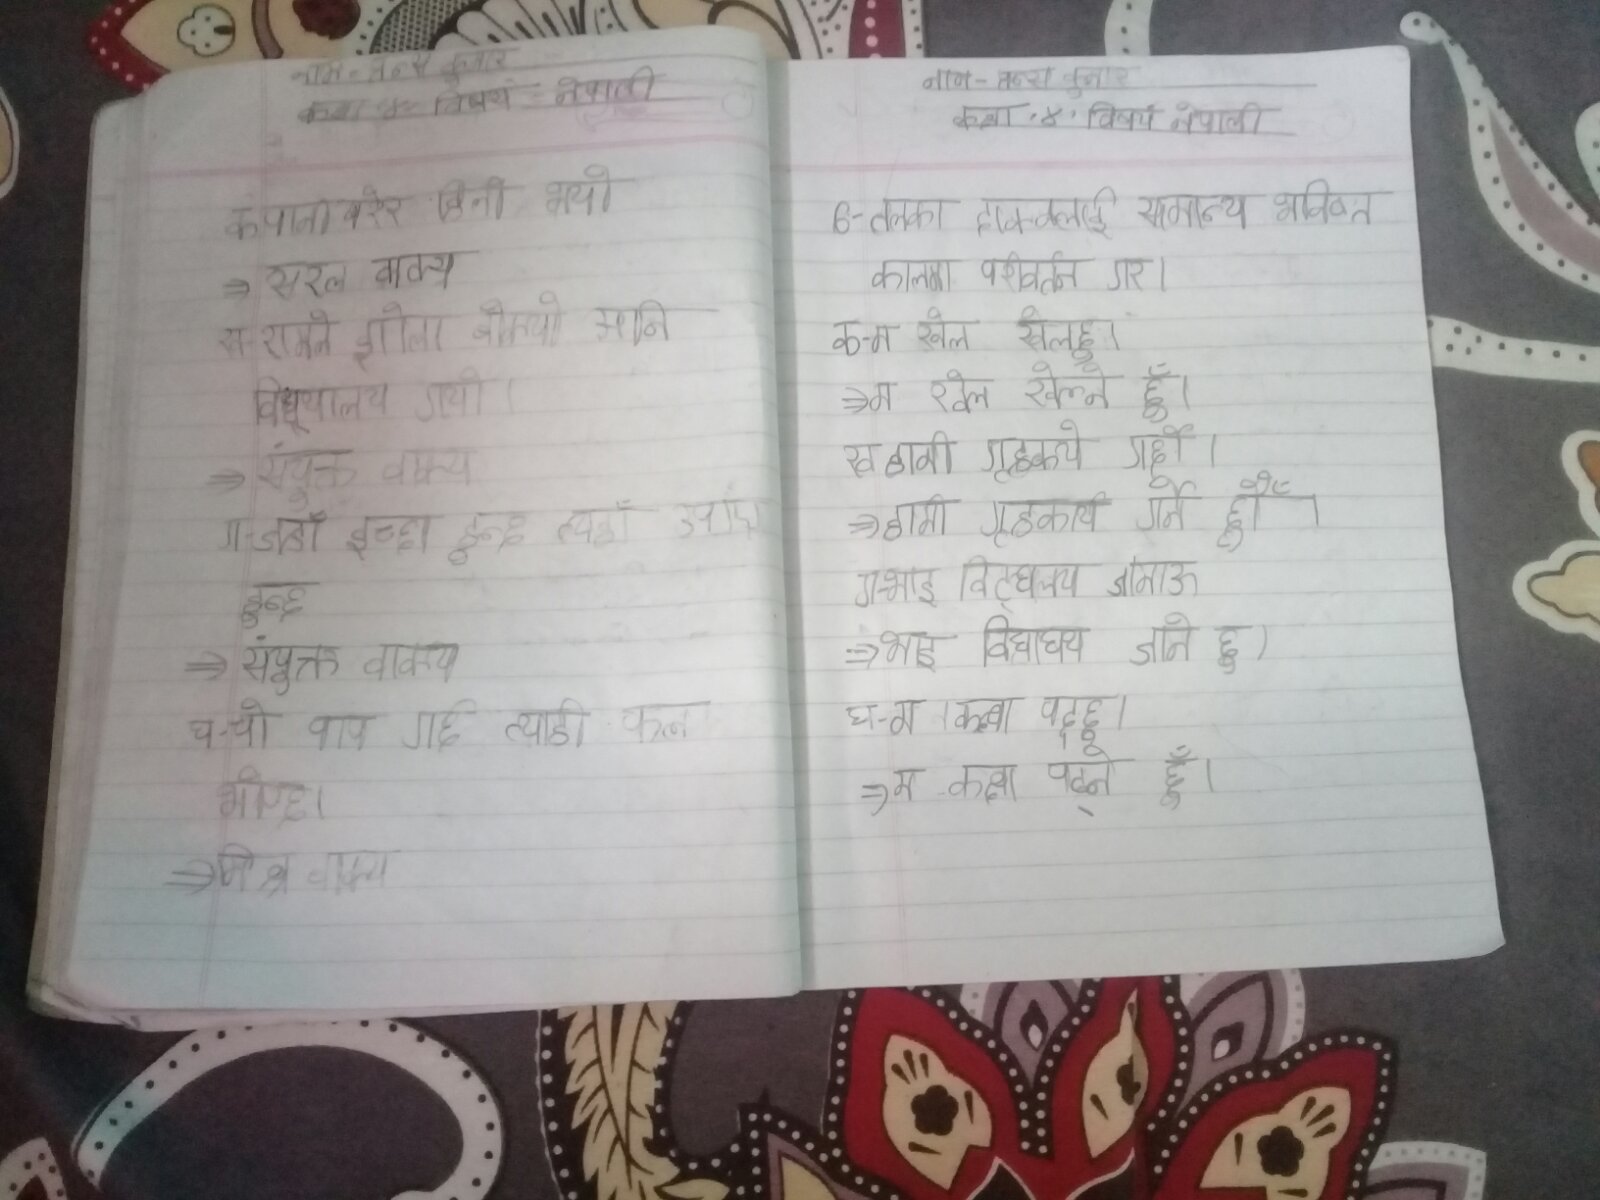 नाम-
कक्षा ४ विषय - नेपाली
क पानी परेर हिलो भयो
⇒ सरल वाक्य
ख-रामले झोला बोक्यो अनि
विद्यालय गयो ।
⇒ संयुक्त वाक्य
ग-जहाँ इच्छा हुन्छ त्यहाँ उपाय
हुन्छ
⇒ संयुक्त वाक्य
घ-जो पाप गर्छ त्याही फल
भोग्छ।
⇒ मिश्र वाक्य
नाम-
कक्षा '४' विषय नेपाली
6-तलका सामान्य भविवत
कालमा परीवर्तन गर।
क-म खेल खेलछु।
⇒म खेल खेल्ने हुँ।
ख हामी गृहकार्य गर्छौ ।
⇒हामी गृहकार्य गर्ने हौं ।
ग-भाइ
⇒भाइ जाने छ।
घ-म कक्षा पढ्छु।
⇒म कक्षा पढ्ने हुँ।